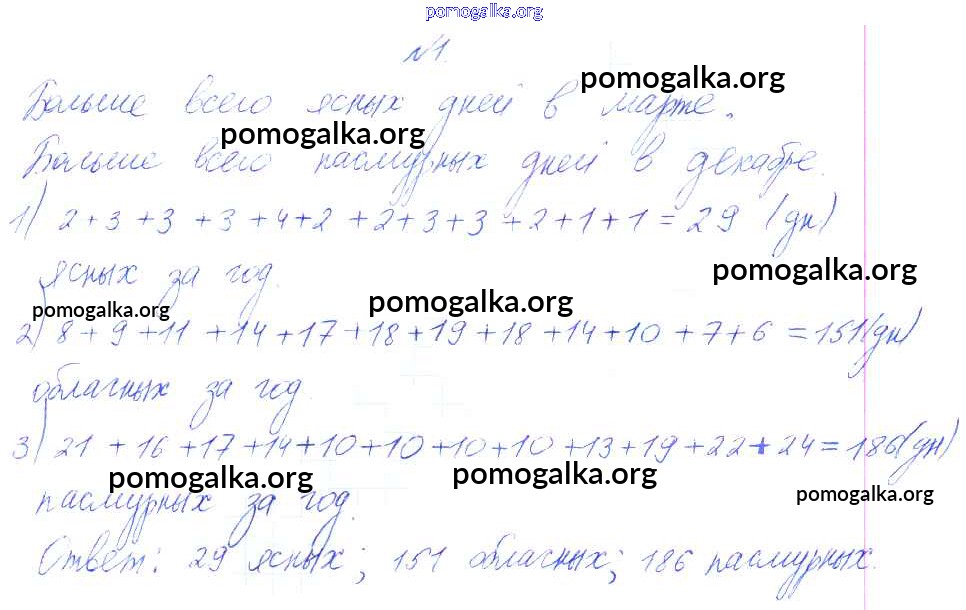 pomogalka.org
№1.
Больше всего ясных дней в марте.
pomogalka.org
pomogalka.org
Больше всего пасмурных дней в декабре.
1) 2+3+3+3+4+2+2+3+3+2+1+1=29 (дн)
ясных за год.
pomogalka.org
pomogalka.org
pomogalka.org
2) 8+9+11+14+17+18+19+18+14+10+7+6=151(дн)
облачных за год.
3) 21+16+17+14+10+10+10+10+13+19+22+24=186(дн)
pomogalka.org
pomogalka.org
pomogalka.org
пасмурных за год.
Ответ: 29 ясных; 151 облачных; 186 пасмурных.